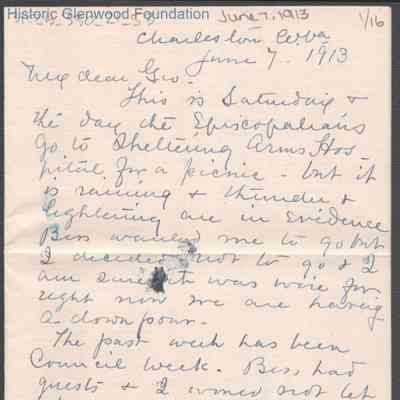 Historic Glenwood Foundation
June 7, 1913
1/16
Charleston W.Va
June 7. 1913
My dear Geo.
This is Saturday &
the day the Episcopalians
go to Sheltering Arms Hos-
pital for a picnic - but it
is raining & thunder &
lightening are in evidence
Bess wanted me to go but
I decided not to go & I
am sure it was wise for
right now we are having
a down pour.
The past week has been
Council Week. Bess had
guests & I would not let